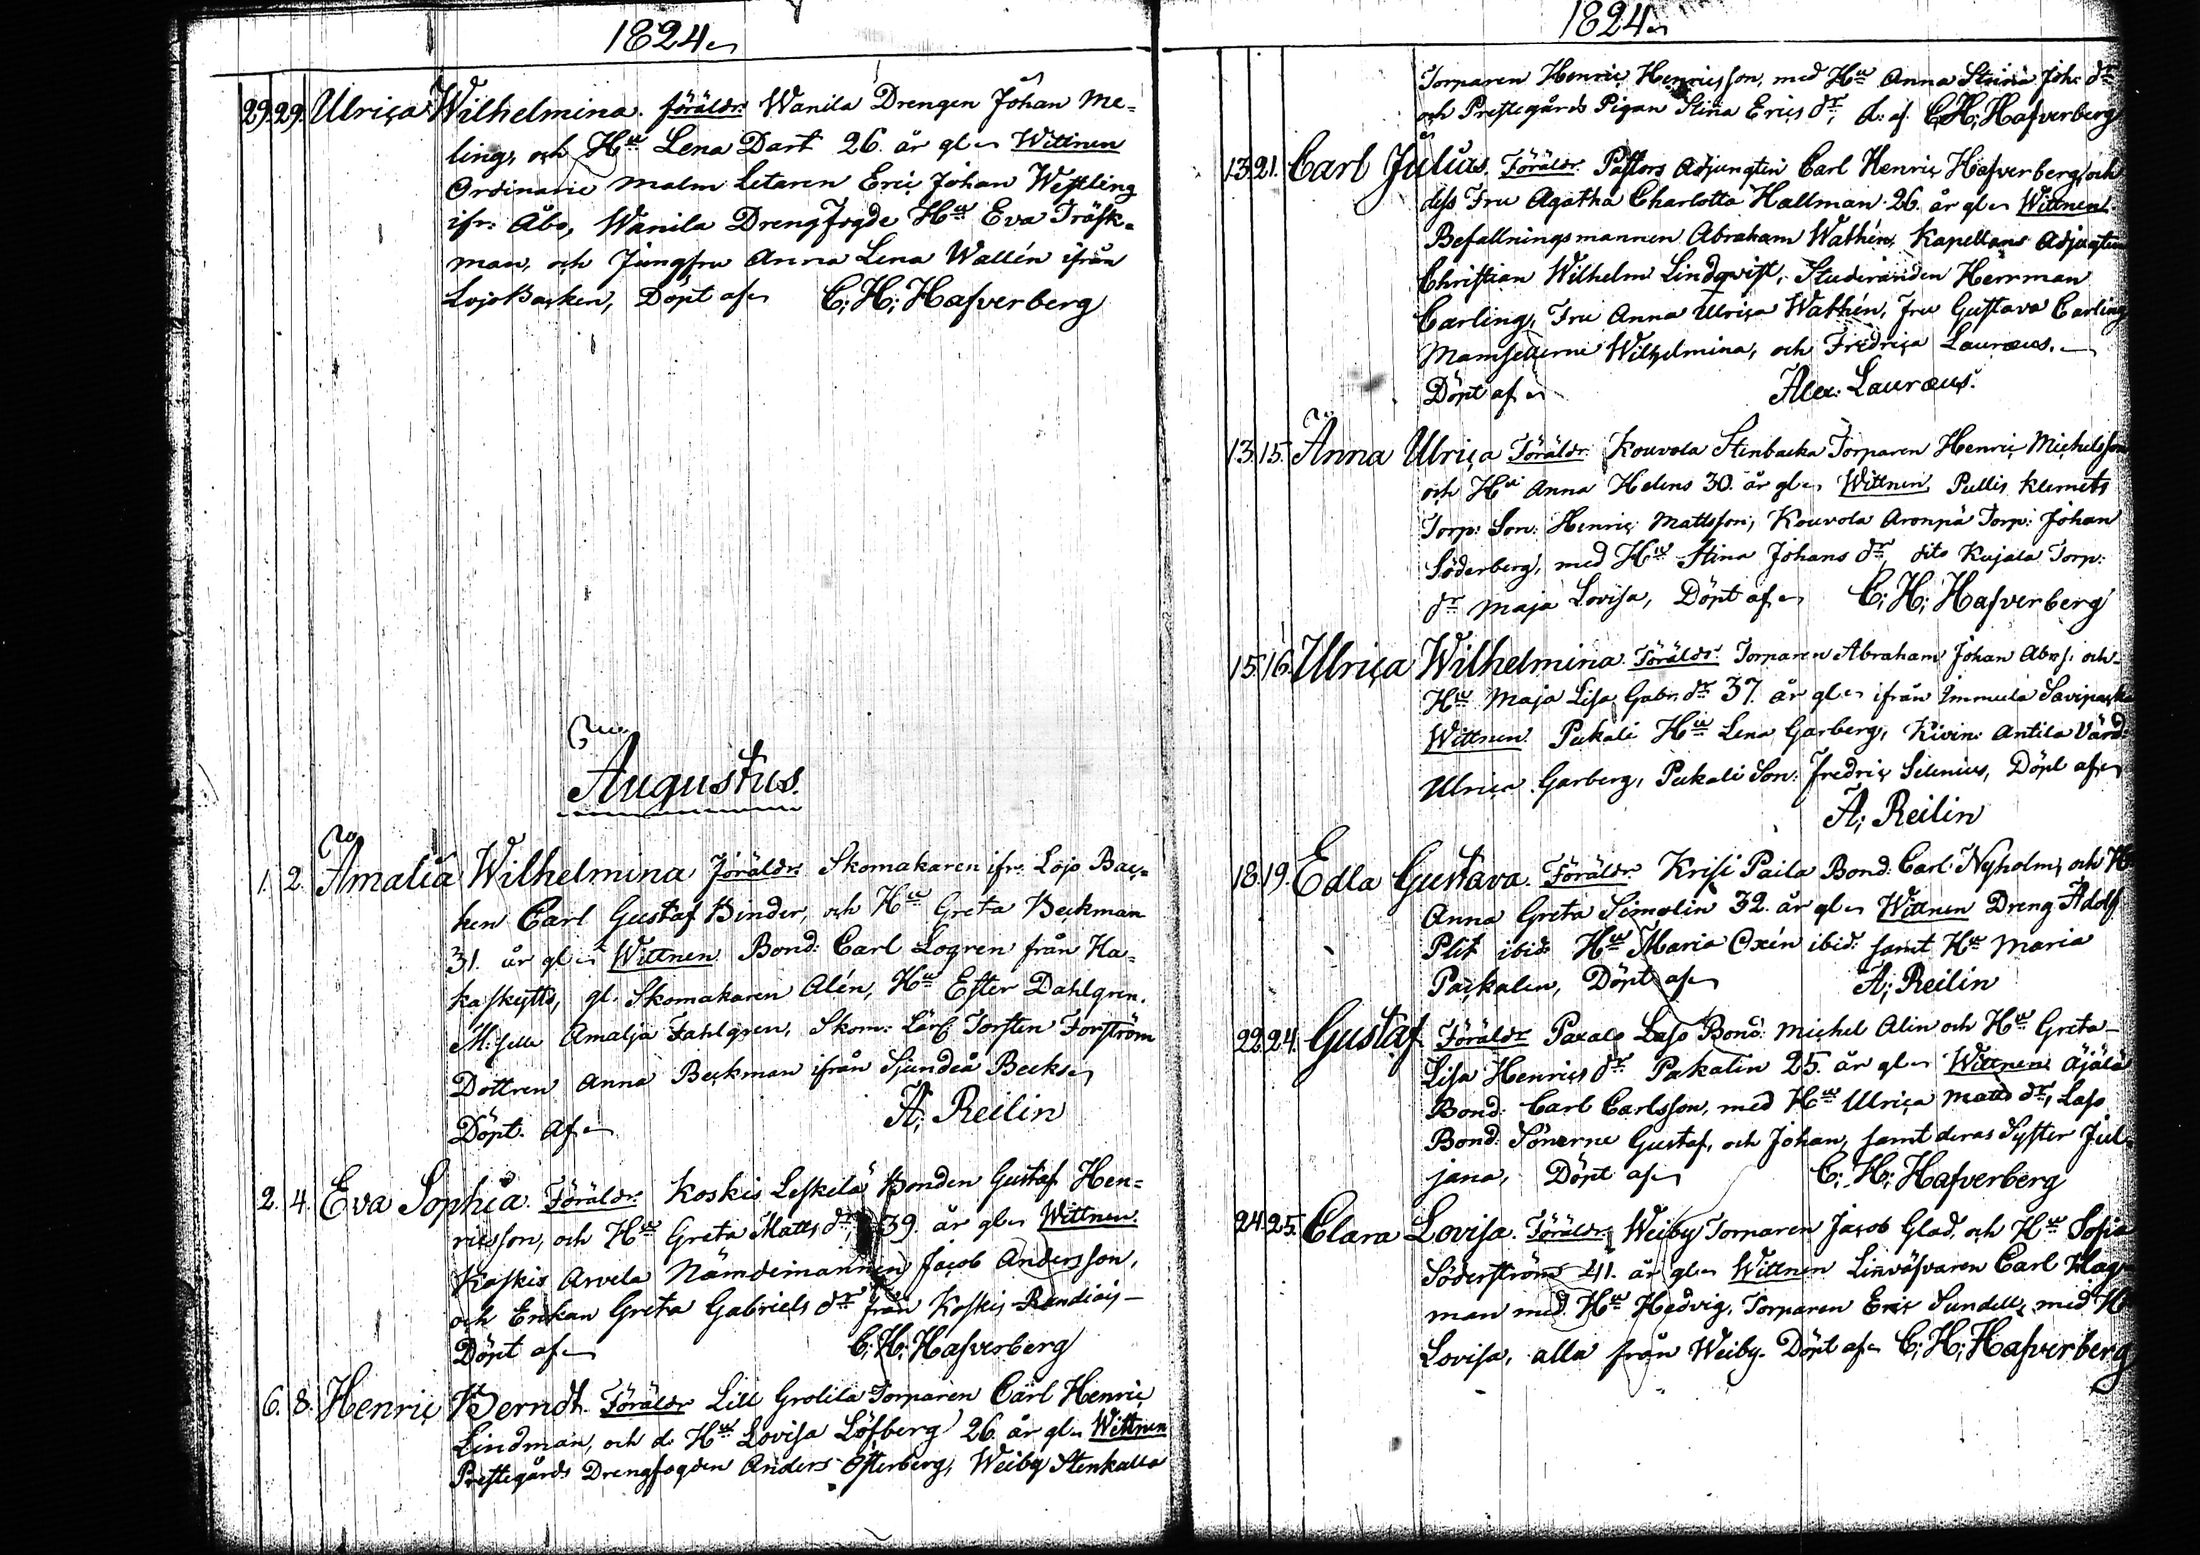 1824
29. 29. Ulrica Wilhelmina. föräldr. Wanila Drengen Johan Me-
ling, och Hu Lena Dart 26. år gl. Wittnen
Ordinarie malm Letaren Eric Johan Westling
ifr. Åbo, Wanila Drengfogde Hu Eva Träsk-
man, och Jungfru Anna Lena Wallén ifrån
Lojo Backen, Döpt af C: H: Hafverberg
Augustus.
1. 2. Amalia Wilhelmina Föräldr. Skomakaren ifr. Lojo Bac-
ken Carl Gustaf Binder, och Hu Greta Beckman
31. år gl. Wittnen Bond: Carl Logren från Ha-
kaskytts, gl. Skomakaren Alén, Hu Ester Dahlgren.
M:selle Amalja Fahlgren, Skom: Lärl. Torsten Forström
Dottren Anna Beckman ifrån Sjundeå Becks
Döpt. Af A; Reilin
2. 4. Eva Sophia. Föräldr. Koskis Leskelä Bonden Gustaf Hen-
ricsson, och Hu Greta Matts dr, 39. år gl. Wittnen.
Koskis Arvela Nämdemannen Jacob Andersson,
och Enkan Greta Gabriels dr från Koskis
Döpt af C: H: Hafverberg
6. 8. Henric Berndt. Föräldr Lill Grolila Torparen Carl Henric
Lindman, och d. Hu Lovisa Löfberg 26 år gl. Wittnen
Prestegårds Drengfogden Anders Österberg, Weiby Stenkalla
1824
Torparen Henric Henricsson, med Hu Anna Stina Joh: dr
och Prestegårds Pigan Stina Erics dr, d: af C; H; Hafverberg
13. 21. Carl Julius. Föräldr. Pastors Adjuncten Carl Henric Hafverberg, och
dess Fru Agatha Charlotta Hallman 26. år gl. Wittnen.
Befallningsmannen Abraham Wathén, Kapellans Adjuncten
Christian Wilhelm Lindqvist, Studeranden Herrman
Carling, Fru Anna Ulrica Wathén, Fru Gustava Carling
Mamsellerne Wilhelmina, och Fredrica Lauræus.
Döpt af Alex: Lauræus.
13. 15. Anna Ulrica Föräldr. Kouvola Stenbacka Torparen Henric Michelsson
och Hu Anna Helens 30. år gl. Wittnen Pullis Klemets
Torp: Son: Henric Mattsson, Kouvola Aronpä Torp: Johan
Söderberg, med Hu Stina Johans dr, dito Kujala Torp:
dr Maja Lovisa, Döpt af C; H; Hafverberg
15. 16. Ulrica Wilhelmina. Föräldr. Torparen Abraham Johan Abrs: och
Hu Maja Lisa Gabr. dr 37. år gl. ifrån Immula
Wittnen Pukali Hu Lena Garberg, Kivin: Antila Värd:
Ulrica Garberg, Pukali Son: Fredric Selenius, Döpt af
A; Reilin
18. 19. Edla Gustava. Föräldr. Krisi Paila Bond: Carl Nyholm, och H
Anna Greta Simolin 32. år gl. Wittnen Dreng Adolf
Plit ibid: Hu Maria Oxén ibid: samt Hu Maria
Packalen, Döpt af A; Reilin
22. 24. Gustaf Föräldr Paxalo Laso Bond: Michel Alin och Hu Greta
Lisa Henrics dr Pakalin 25. år gl. Wittnen Äjälä
Bond: Carl Carlsson, med Hu Ulrica Matts dr, Laso
Bond: Sönerne Gustaf, och Johan, samt deras Syster Jul-
jana, Döpt af C; H; Hafverberg
24. 25. Clara Lovisa. Föräldr. Weiby Torparen Jacob Glad, och Hu Sofia
Söderström 41. år gl. Wittnen Linväfvaren Carl Hag-
man med Hu Hedvig, Torparen Eric Sundell, med H
Lovisa, alla från Weiby. Döpt af C; H; Hafverberg